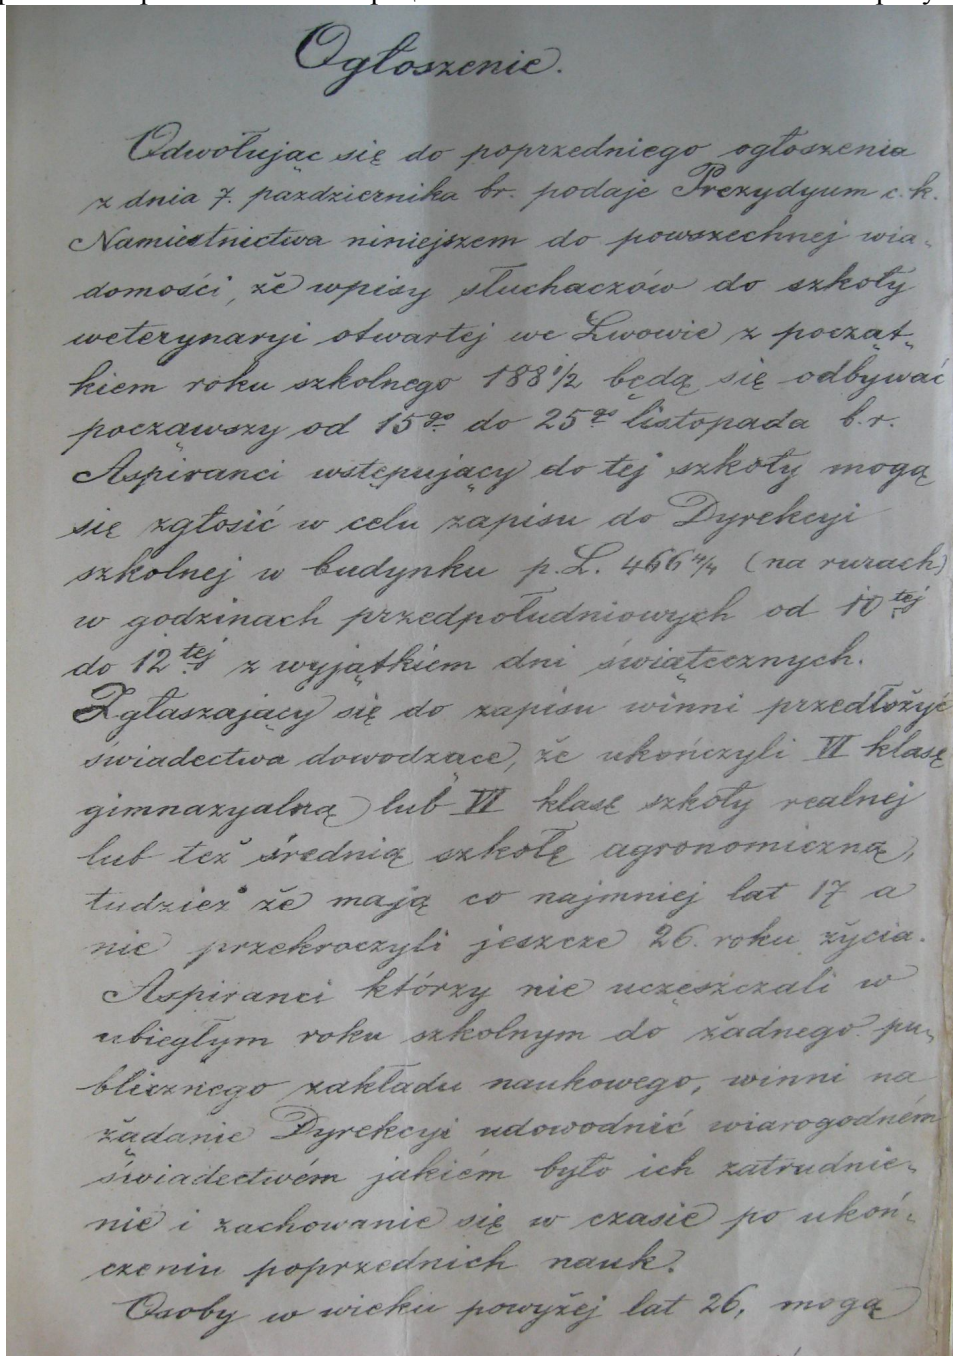 Ogłoszenie.
Odwołując się do poprzedniego ogłoszenia
z dnia 7. października br. podaje Prezydyum c. k.
Namiestnictwa niniejszem do powszechnej wia-
domości, że wpisy słuchaczów do szkoły
weterynaryi otwartej we Lwowie z począt-
kiem roku szkolnego 1881/2 będą się odbywać
począwszy od 15go do 25go listopada b. r.
Aspiranci wstępujący do tej szkoły mogą
się zgłosić w celu zapisu do Dyrekcyi
szkolnej w budynku p. L. 466 4/4 (na rurach)
w godzinach przedpołudniowych od 10tej
do 12tej z wyjątkiem dni świątecznych.
Zgłaszający się do zapisu winni przedłożyć
świadectwa dowodzące, że ukończyli VI klasę
gimnazyalną lub VI klasę szkoły realnej
lub też średnią szkołę agronomiczną,
tudzież że mają co najmniej lat 17 a
nie przekroczyli jeszcze 26. roku życia.
Aspiranci którzy nie uczęszczali w
ubiegłym roku szkolnym do żadnego pu-
blicznego zakładu naukowego, winni na
żądanie Dyrekcyi udowodnić wiarogodném
świadectwém jakiém było ich zatrudnie-
nie i zachowanie się w czasie po ukoń-
czeniu poprzednich nauk.
Osoby w wieku powyżej lat 26, mogą